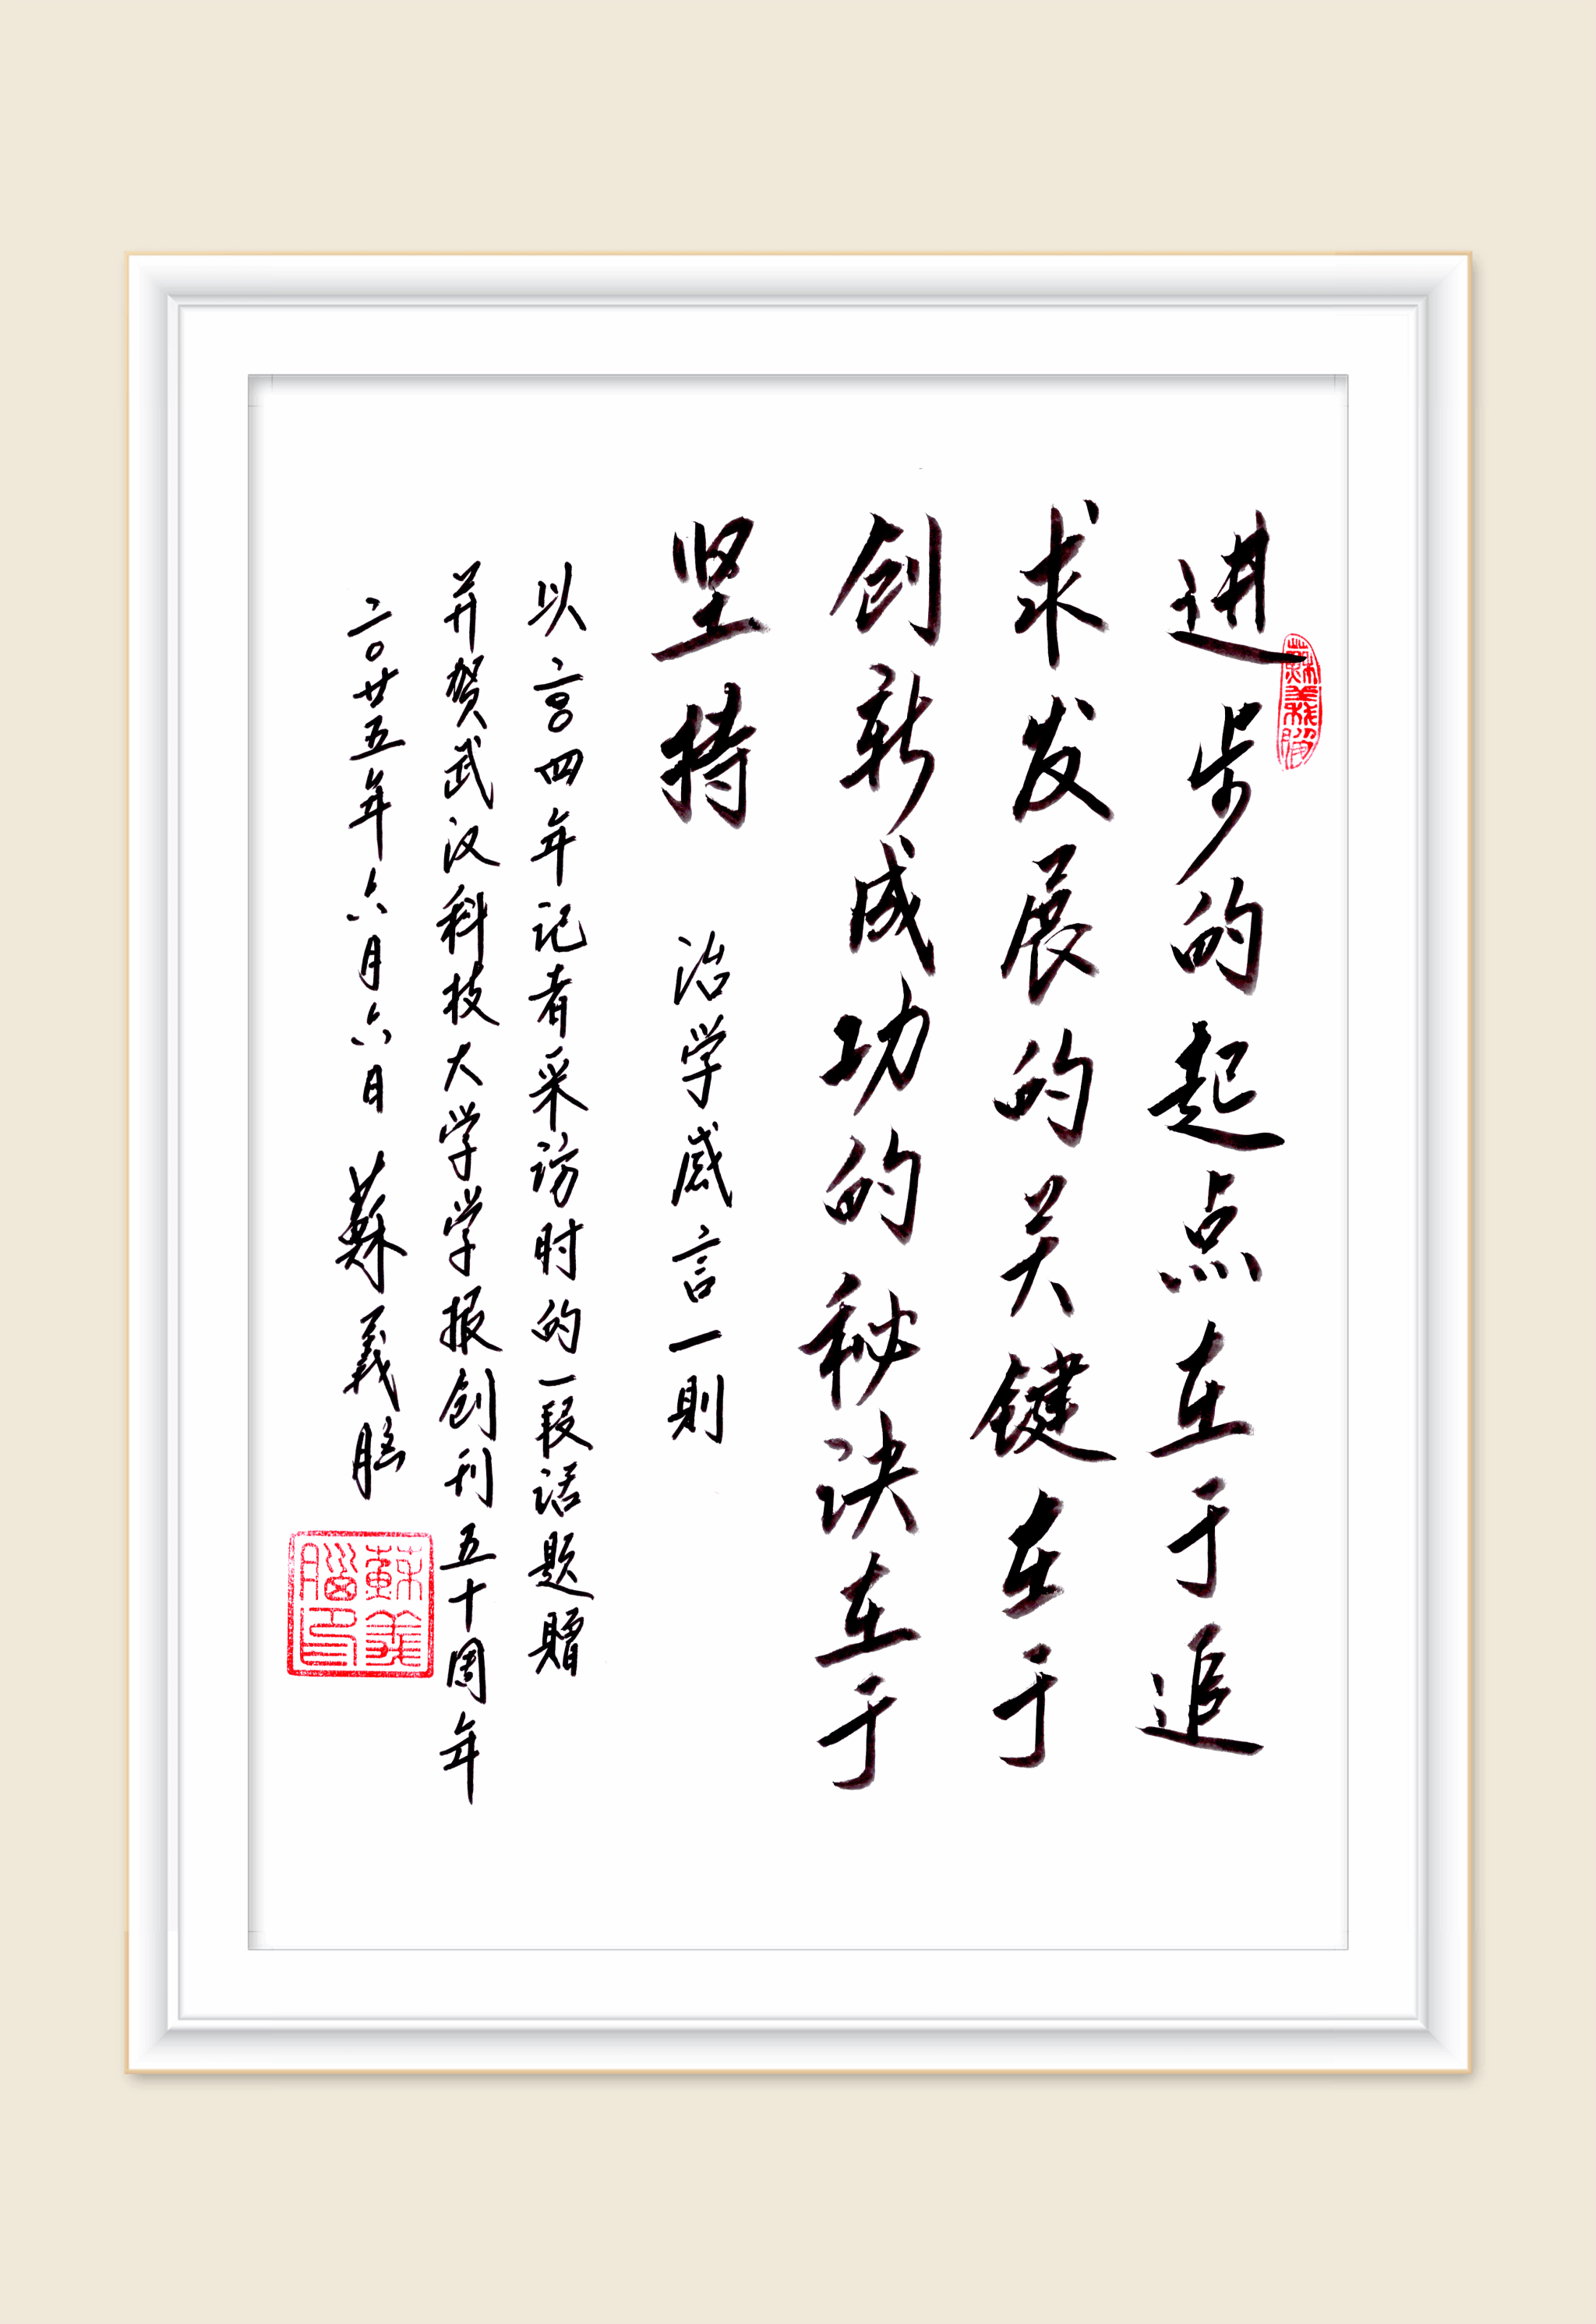 蘇義腦
进步的起点在于追
求发展的关键在于
创新成功的秘诀在于
坚持 治学感言一則
以二〇〇四年记者采访时的一段话题贈
并贺武汉科技大学学报创刊五十周年
二〇廿五年六月六日 蘇義脑
蘇義腦印